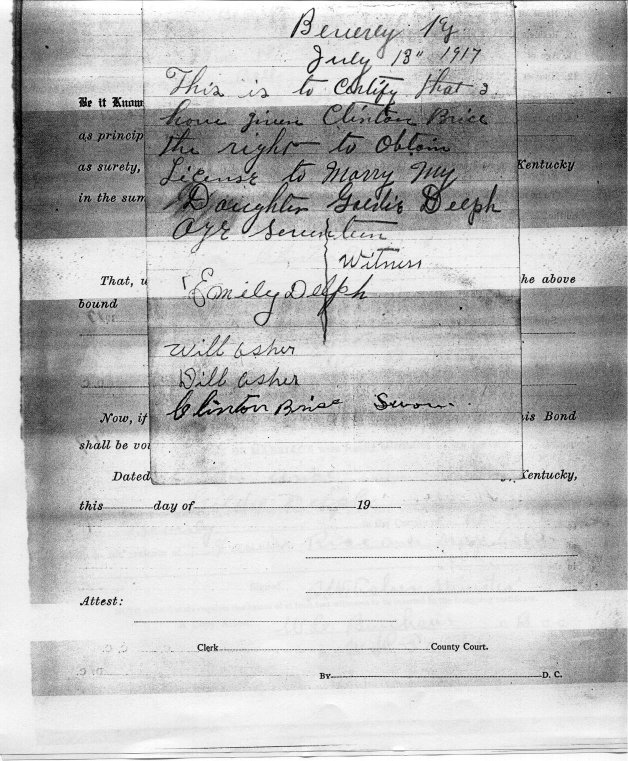 Beverly Ky
July 18" 1917
This is to Certify that I
have given Clinton Brice
the right to Obtain
License to Marry My
Daughter Goldie Delph
Age Seventeen
Witness
Emily Delph
Will Asher
Will Asher
Clinton Brice Sworn
Be it Know
as princip
as surety, Kentucky
in the sum
That, he above
bound
Now, if is Bond
shall be voi
Dated Kentucky,
this day of 19
Attest:
Clerk County Court.
By D. C.